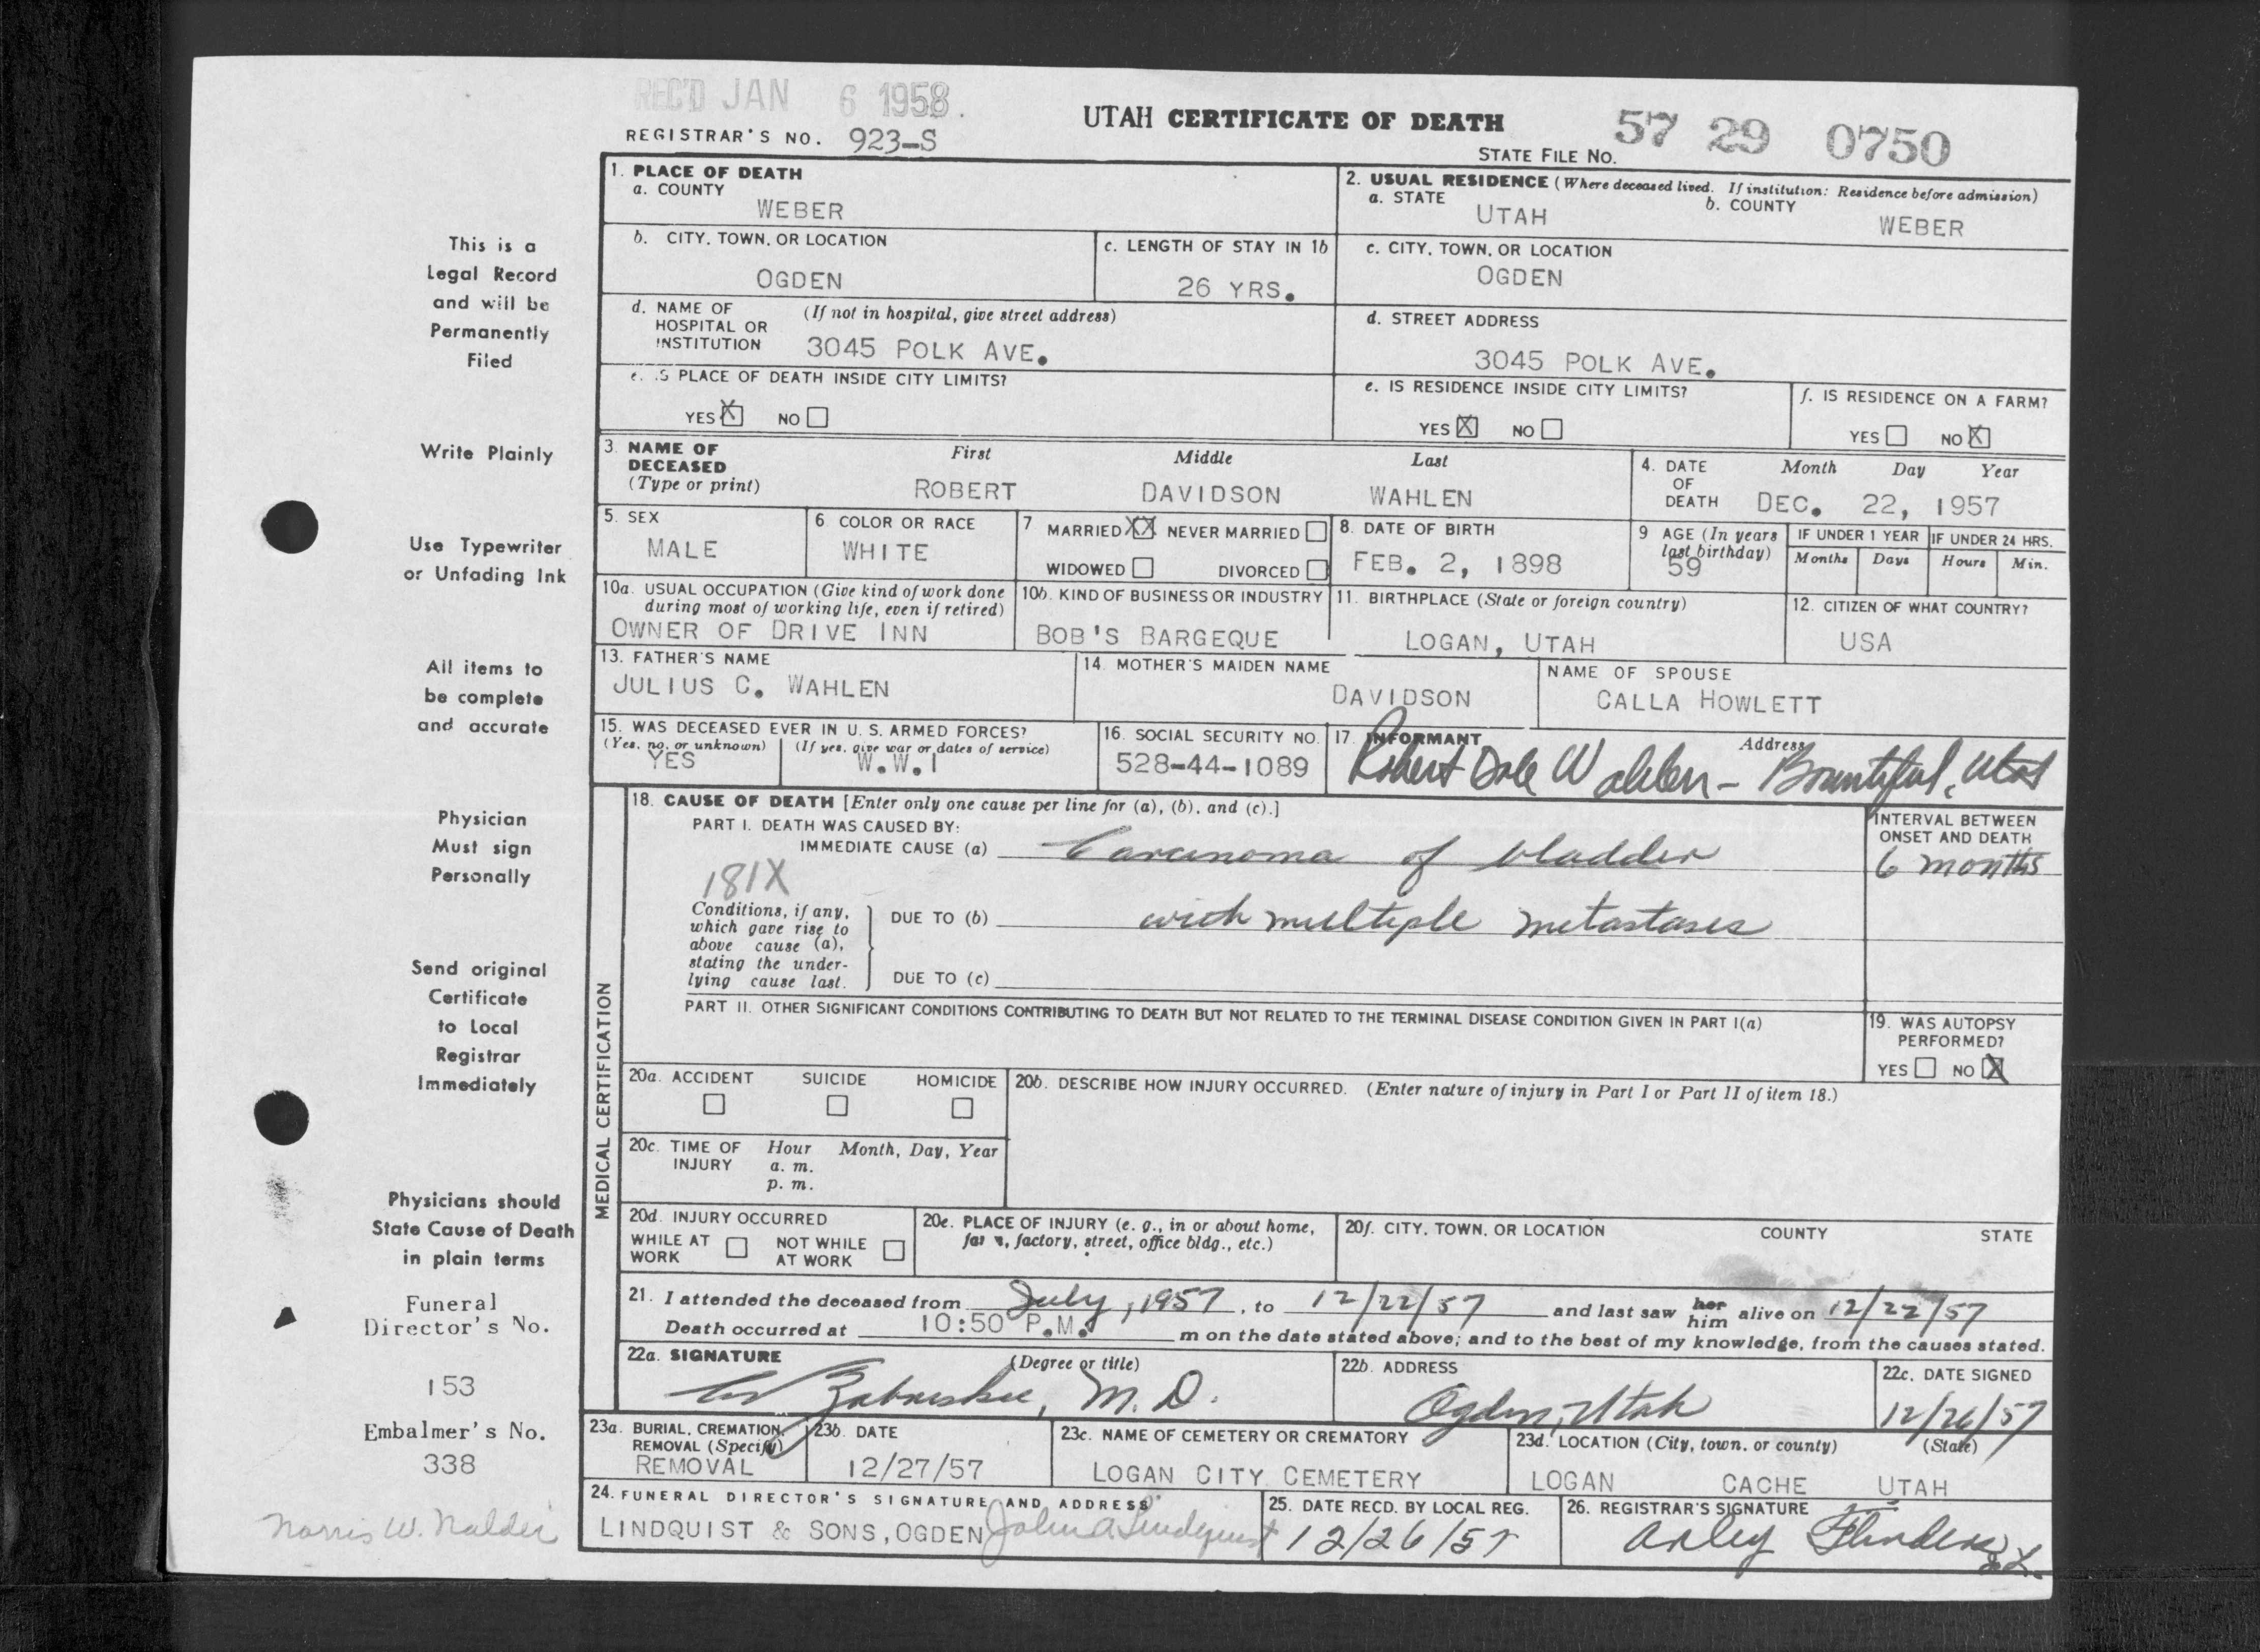 REC'D JAN 6 1958.
REGISTRAR'S NO. 923-S
UTAH CERTIFICATE OF DEATH
STATE FILE NO. 57 29 0750
1. PLACE OF DEATH
a. COUNTY
WEBER
2. USUAL RESIDENCE (Where deceased lived. If institution: Residence before admission)
a. STATE UTAH b. COUNTY WEBER
b. CITY, TOWN, OR LOCATION
OGDEN
c. LENGTH OF STAY IN 1b
26 YRS.
c. CITY, TOWN, OR LOCATION
OGDEN
d. NAME OF HOSPITAL OR INSTITUTION (If not in hospital, give street address)
3045 POLK AVE.
d. STREET ADDRESS
3045 POLK AVE.
e. IS PLACE OF DEATH INSIDE CITY LIMITS?
YES X NO
e. IS RESIDENCE INSIDE CITY LIMITS?
YES X NO
f. IS RESIDENCE ON A FARM?
YES NO X
3. NAME OF DECEASED (Type or print)
First Middle Last
ROBERT DAVIDSON WAHLEN
4. DATE OF DEATH Month Day Year
DEC. 22, 1957
5. SEX
MALE
6 COLOR OR RACE
WHITE
7 MARRIED XX NEVER MARRIED
WIDOWED DIVORCED
8. DATE OF BIRTH
FEB. 2, 1898
9 AGE (In years last birthday)
59
IF UNDER 1 YEAR
Months Days
IF UNDER 24 HRS.
Hours Min.
10a. USUAL OCCUPATION (Give kind of work done during most of working life, even if retired)
OWNER OF DRIVE INN
10b. KIND OF BUSINESS OR INDUSTRY
BOB'S BARGEQUE
11. BIRTHPLACE (State or foreign country)
LOGAN, UTAH
12. CITIZEN OF WHAT COUNTRY?
USA
13. FATHER'S NAME
JULIUS C. WAHLEN
14. MOTHER'S MAIDEN NAME
DAVIDSON
NAME OF SPOUSE
CALLA HOWLETT
15. WAS DECEASED EVER IN U. S. ARMED FORCES?
(Yes, no, or unknown) (If yes, give war or dates of service)
YES W.W.I
16. SOCIAL SECURITY NO.
528-44-1089
17. INFORMANT Address
Robert Dale Wahlen - Bountiful, Utah
18. CAUSE OF DEATH [Enter only one cause per line for (a), (b), and (c).]
PART I. DEATH WAS CAUSED BY:
IMMEDIATE CAUSE (a) Carcinoma of bladder
INTERVAL BETWEEN ONSET AND DEATH
6 months
181X
Conditions, if any, which gave rise to above cause (a), stating the underlying cause last.
DUE TO (b) with multiple metastases
DUE TO (c)
PART II. OTHER SIGNIFICANT CONDITIONS CONTRIBUTING TO DEATH BUT NOT RELATED TO THE TERMINAL DISEASE CONDITION GIVEN IN PART I(a)
19. WAS AUTOPSY PERFORMED?
YES NO X
MEDICAL CERTIFICATION
20a. ACCIDENT SUICIDE HOMICIDE
20b. DESCRIBE HOW INJURY OCCURRED. (Enter nature of injury in Part I or Part II of item 18.)
20c. TIME OF INJURY Hour Month, Day, Year
a. m.
p. m.
20d. INJURY OCCURRED
WHILE AT WORK NOT WHILE AT WORK
20e. PLACE OF INJURY (e. g., in or about home, farm, factory, street, office bldg., etc.)
20f. CITY, TOWN, OR LOCATION COUNTY STATE
21. I attended the deceased from July, 1957, to 12/22/57 and last saw her him alive on 12/22/57
Death occurred at 10:50 P.M. m on the date stated above; and to the best of my knowledge, from the causes stated.
22a. SIGNATURE (Degree or title)
M. D.
22b. ADDRESS
Ogden, Utah
22c. DATE SIGNED
12/26/57
23a. BURIAL, CREMATION, REMOVAL (Specify)
REMOVAL
23b. DATE
12/27/57
23c. NAME OF CEMETERY OR CREMATORY
LOGAN CITY CEMETERY
23d. LOCATION (City, town, or county) (State)
LOGAN CACHE UTAH
24. FUNERAL DIRECTOR'S SIGNATURE AND ADDRESS
LINDQUIST & SONS, OGDEN John A. Lindquist
25. DATE RECD. BY LOCAL REG.
12/26/57
26. REGISTRAR'S SIGNATURE
Arley Flinders
This is a
Legal Record
and will be
Permanently
Filed
Write Plainly
Use Typewriter
or Unfading Ink
All items to
be complete
and accurate
Physician
Must sign
Personally
Send original
Certificate
to Local
Registrar
Immediately
Physicians should
State Cause of Death
in plain terms
Funeral
Director's No.
153
Embalmer's No.
338
Norris W. Nalder